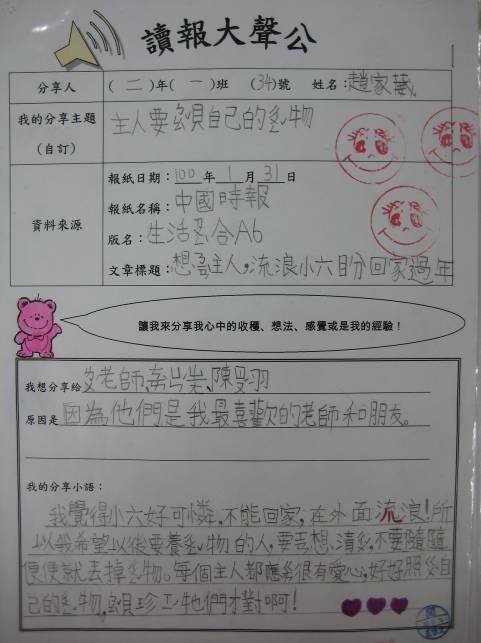 讀報大聲公
分享人 (二)年(一)班 (34)號 姓名:趙家葳
我的分享主題 主人要
自己的
物
(自訂)
資料來源
報紙日期:100年1月31日
報紙名稱:中國時報
版名:生活
合A6
文章標題:想
主人,流浪小六
回家過年
讓我來分享我心中的收穫、想法、感覺或是我的經驗!
我想分享給
老師、
、陳
羽
原因是 因為他們是我最喜歡的老師和朋友。
我的分享小語:
我覺得小六好可憐,不能回家,在外面流浪!所
以我希望以後要養
物的人,要
想清
,不要隨隨
便便就丟掉
物。每個主人都應
很有愛心,好好照
自
己的
物,
珍
牠們才對啊!